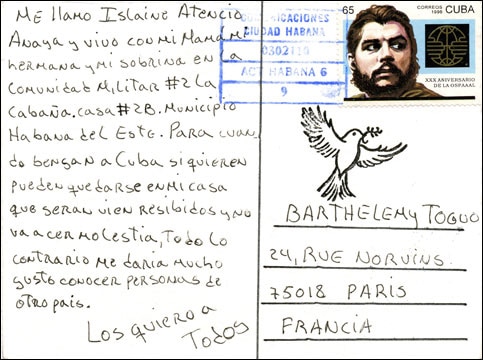 Me llamo Islaine Atencio
Anaya y vivo con mi Mamá mi
hermana y mi sobrina en la
Comunidad Militar #2 La
Cabaña, casa #2B. Municipio
Habana del Este. Para cuan
do bengan a Cuba si quieren
pueden quedarse en mi casa
que seran vien resibidos y no
va a cer molestia, todo lo
contrario me daria mucho
gusto conocer personas de
otro pais.
Los quiero a
Todos
COMUNICACIONES
CIUDAD HABANA
0302110
ACT HABANA 6
9
65 CORREOS 1998 CUBA
XXX ANIVERSARIO
DE LA OSPAAAL
BARTHELEMY TOGUO
24, RUE NORVINS.
75018 PARIS
FRANCIA